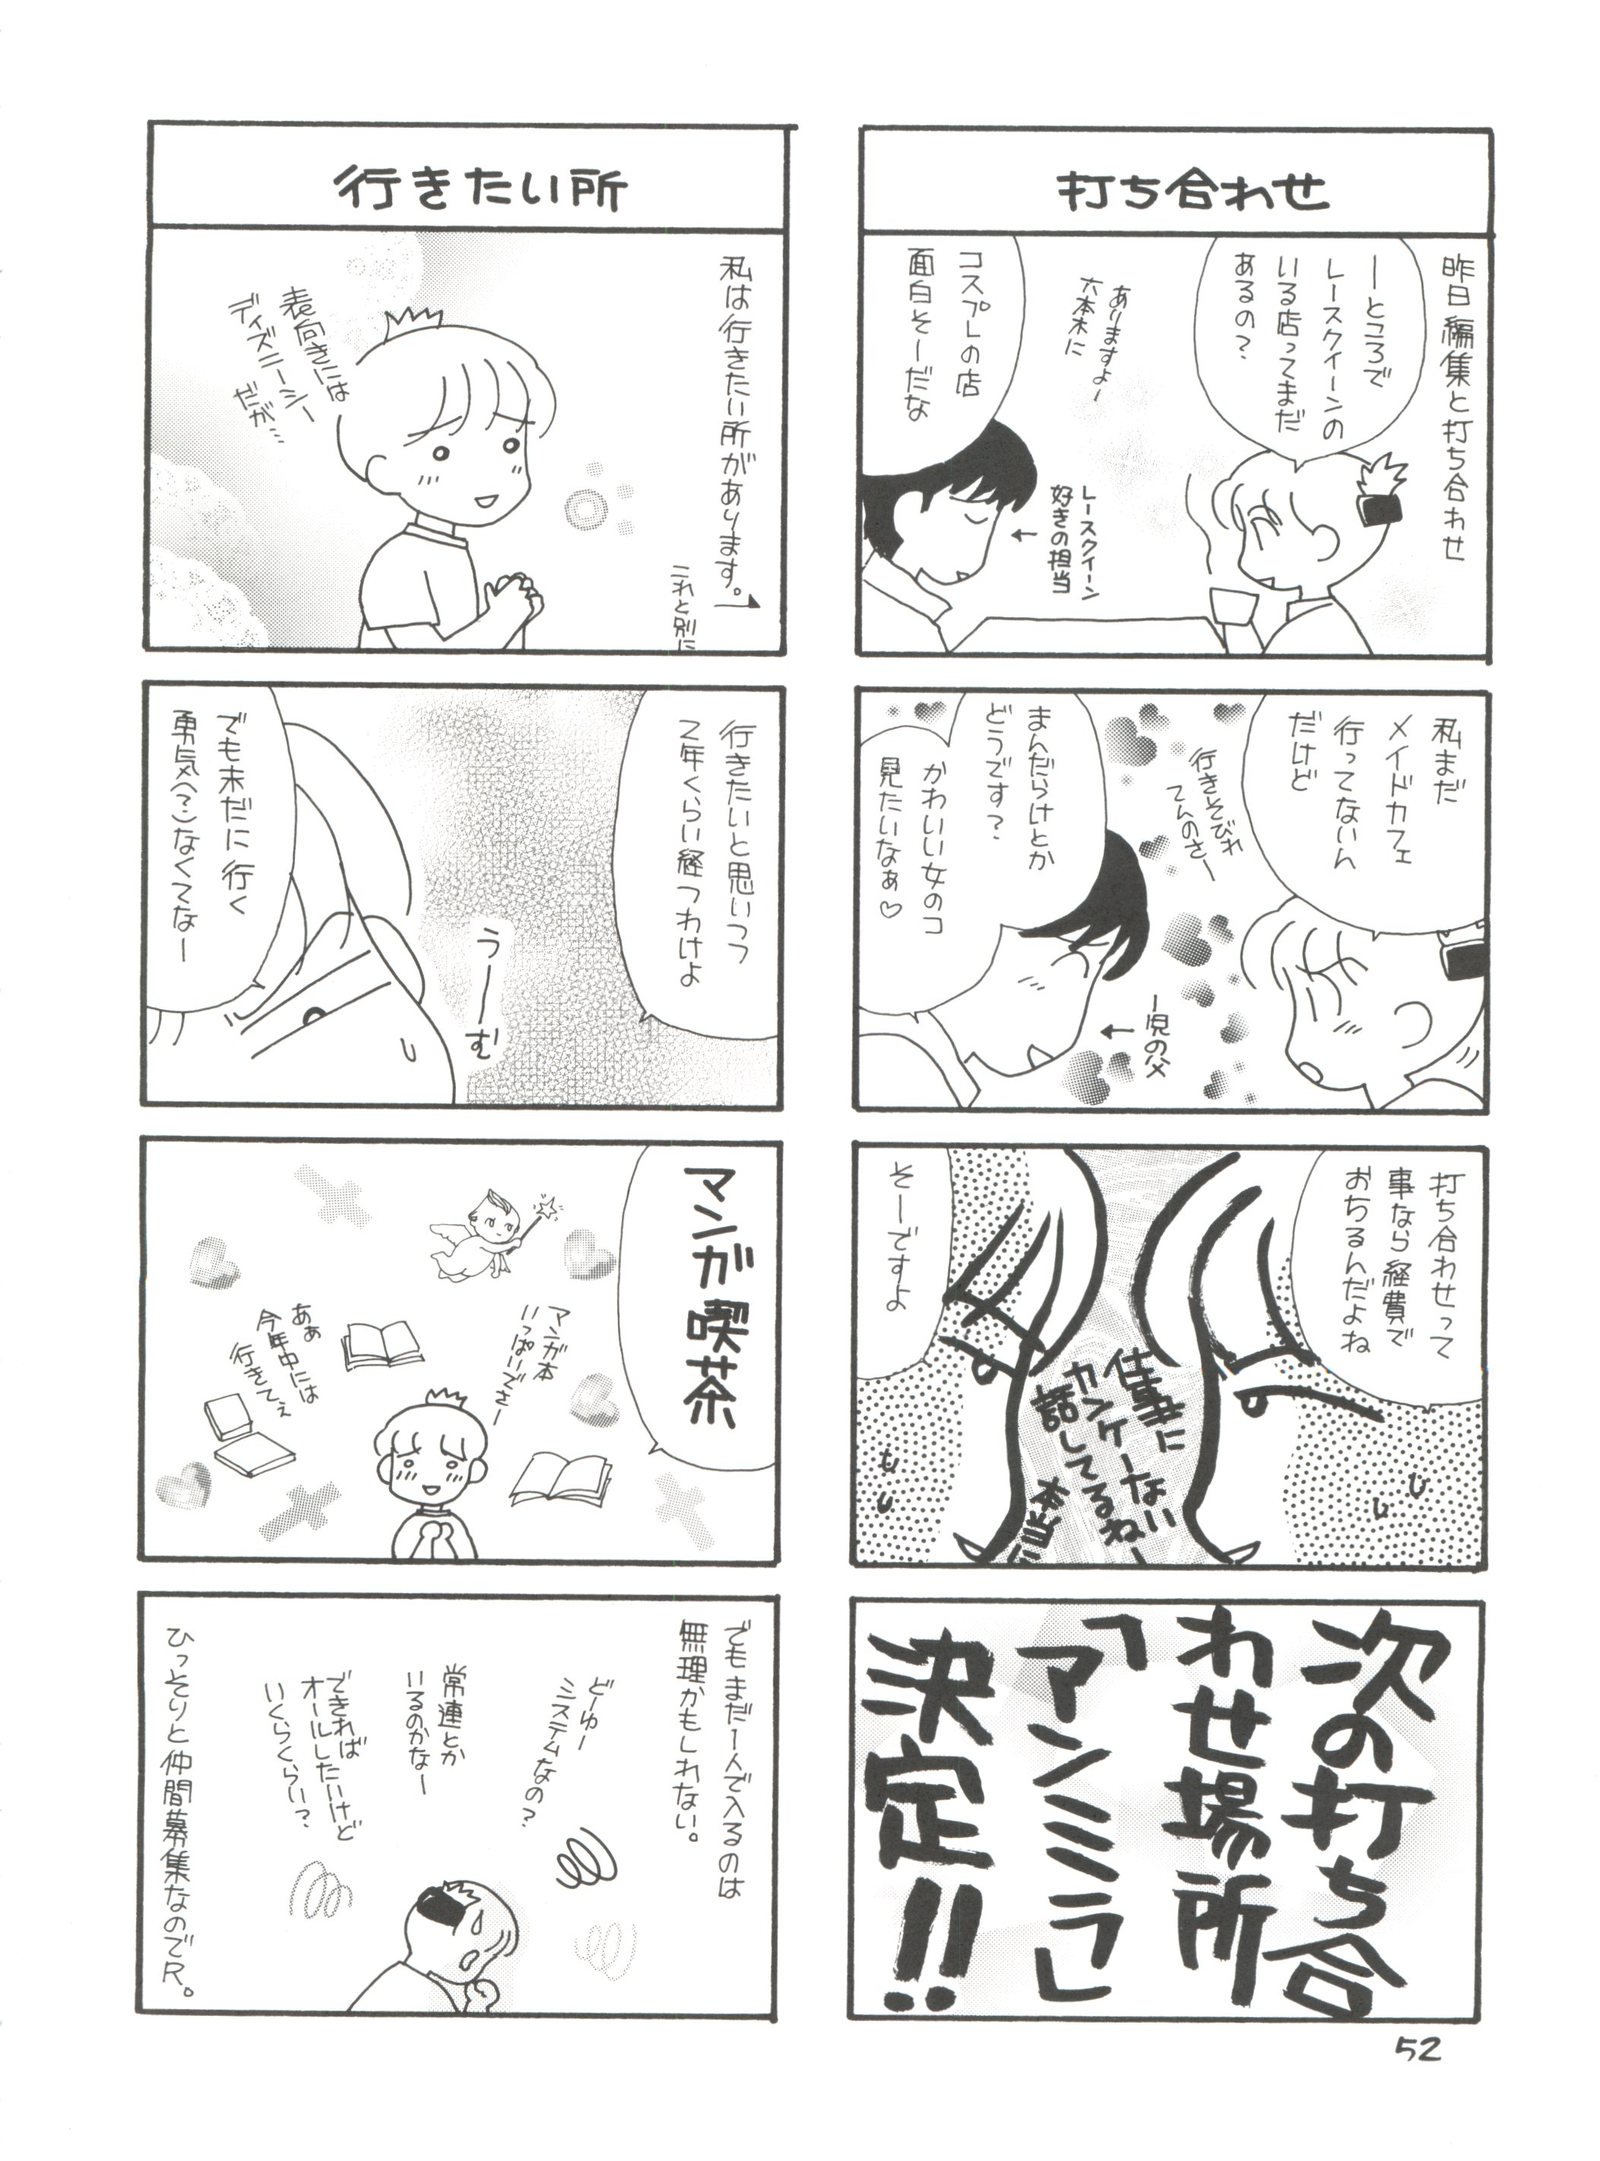 打ち合わせ
昨日編集と打ち合わせ
ーところで
レースクイーンの
いる店ってまだ
あるの？
ありますよー
六本木に
コスプレの店
面白そーだな
レースクイーン
好きの担当
私まだ
メイドカフェ
行ってないん
だけど
行きそびれ
てんのさー
まんだらけとか
どうです？
かわいい女のコ
見たいなぁ♡
一児の父
打ち合わせって
事なら経費で
おちるんだよね
そーですよ
仕事に
カンケーない
話してるねー
本当に
次の打ち合
わせ場所
「アンミラ」
決定!!
行きたい所
私は行きたい所があります。
これと別に
表向きには
ディズニーシー
だが…
行きたいと思いつつ
2年くらい経つわけよ
うーーむ
でも未だに行く
勇気(？)なくてなー
マンガ喫茶
マンガ本
いっぱいでさー
あぁ
今年中には
行きてぇ
でもまだ1人で入るのは
無理かもしれない。
どーゆー
システムなの？
常連とか
いるのかなー
できれば
オールしたいけど
いくらくらい？
ひっそりと仲間募集なのでR。
52